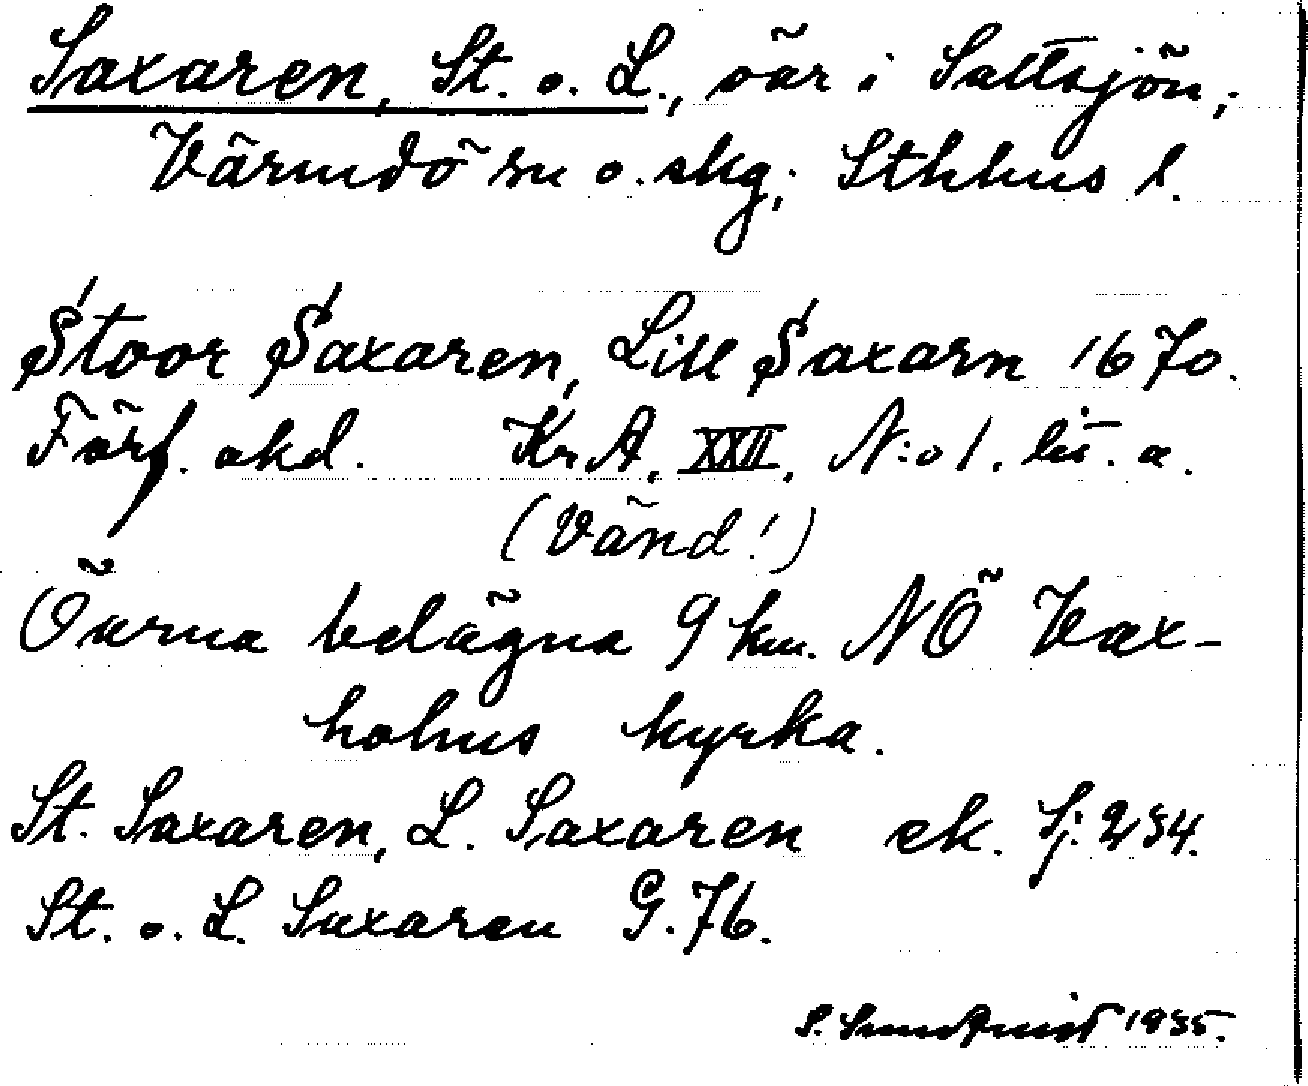 Saxaren, St. o. L., öar i Saltsjön,
Värmdö sn o. skg; Sthlms l.
Stoor Saxaren, Lill Saxarn 1670.
Förf. okd. KrA. XXII, N:o 1. lit. a.
(Vänd!)
Öarna belägna 9 km. NÖ Vax-
holms kyrka.
St. Saxaren, L. Saxaren ek. Sj: 234.
St. o. L. Saxaren G. 76.
S. Sundqvist 1935.